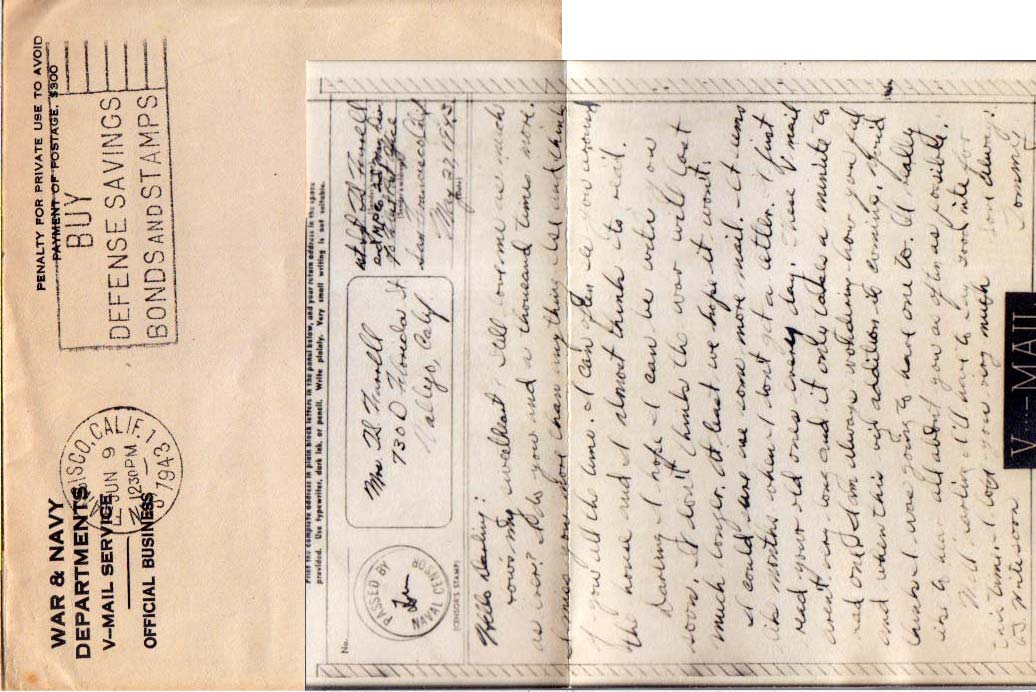 WAR & NAVY
DEPARTMENTS
V-MAIL SERVICE
OFFICIAL BUSINESS
CISCO, CALIF. 1
JUN 9
12 30 PM
1943
PENALTY FOR PRIVATE USE TO AVOID
PAYMENT OF POSTAGE, $300
BUY
DEFENSE SAVINGS
BONDS AND STAMPS
Print the complete address in plain block letters in the panel below, and your return address in the space
provided. Use typewriter, dark ink, or pencil. Write plainly. Very small writing is not suitable.
No.
PASSED BY
NAVAL CENSOR
(CENSOR'S STAMP)
Mrs.
730 D Florida St
Vallejo, Calif
San Francisco Calif
May 27, 1943
Hello Darling:
my sweetheart? Still love me as much
as ever? you and a thousand times more.
you more than anything else and think
of you all the time. I can often see you around
the house and I almost think its real.
Darling I hope I can be with you
soon. I don't think the war will last
much longer. At least we hope it won't.
I could sure use some more mail. It seems
like months when I don't get a letter. I just
read your old ones every day. These V mail
aren't very long and it only takes a minute to
read one. I am always wondering how you feel
and when this new addition is coming.
I was going to have one to. I'll really
to hear all about you as often as possible.
Well darling I'll have to say good nite for
this time. I love you very much
Tommy
V-MAIL